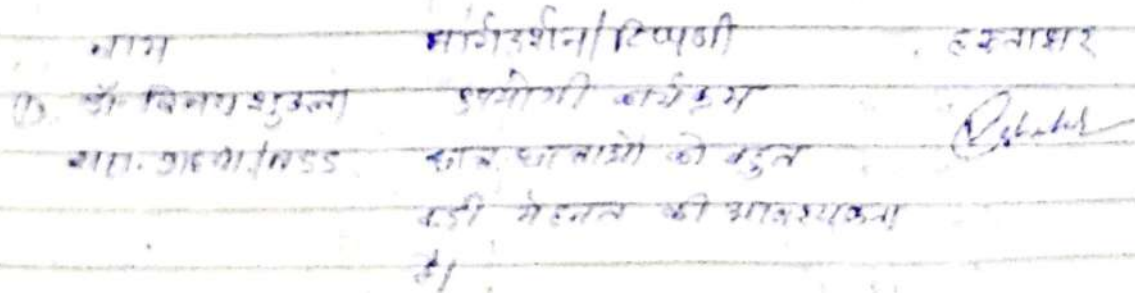 नाम मार्गदर्शन/टिप्पणी हस्ताक्षर
(1). डॉ. विनय शुक्ला उपयोगी कार्यक्रम
छात्र छात्राओं को बहुत
बड़ी मेहनत की आवश्यकता
है।